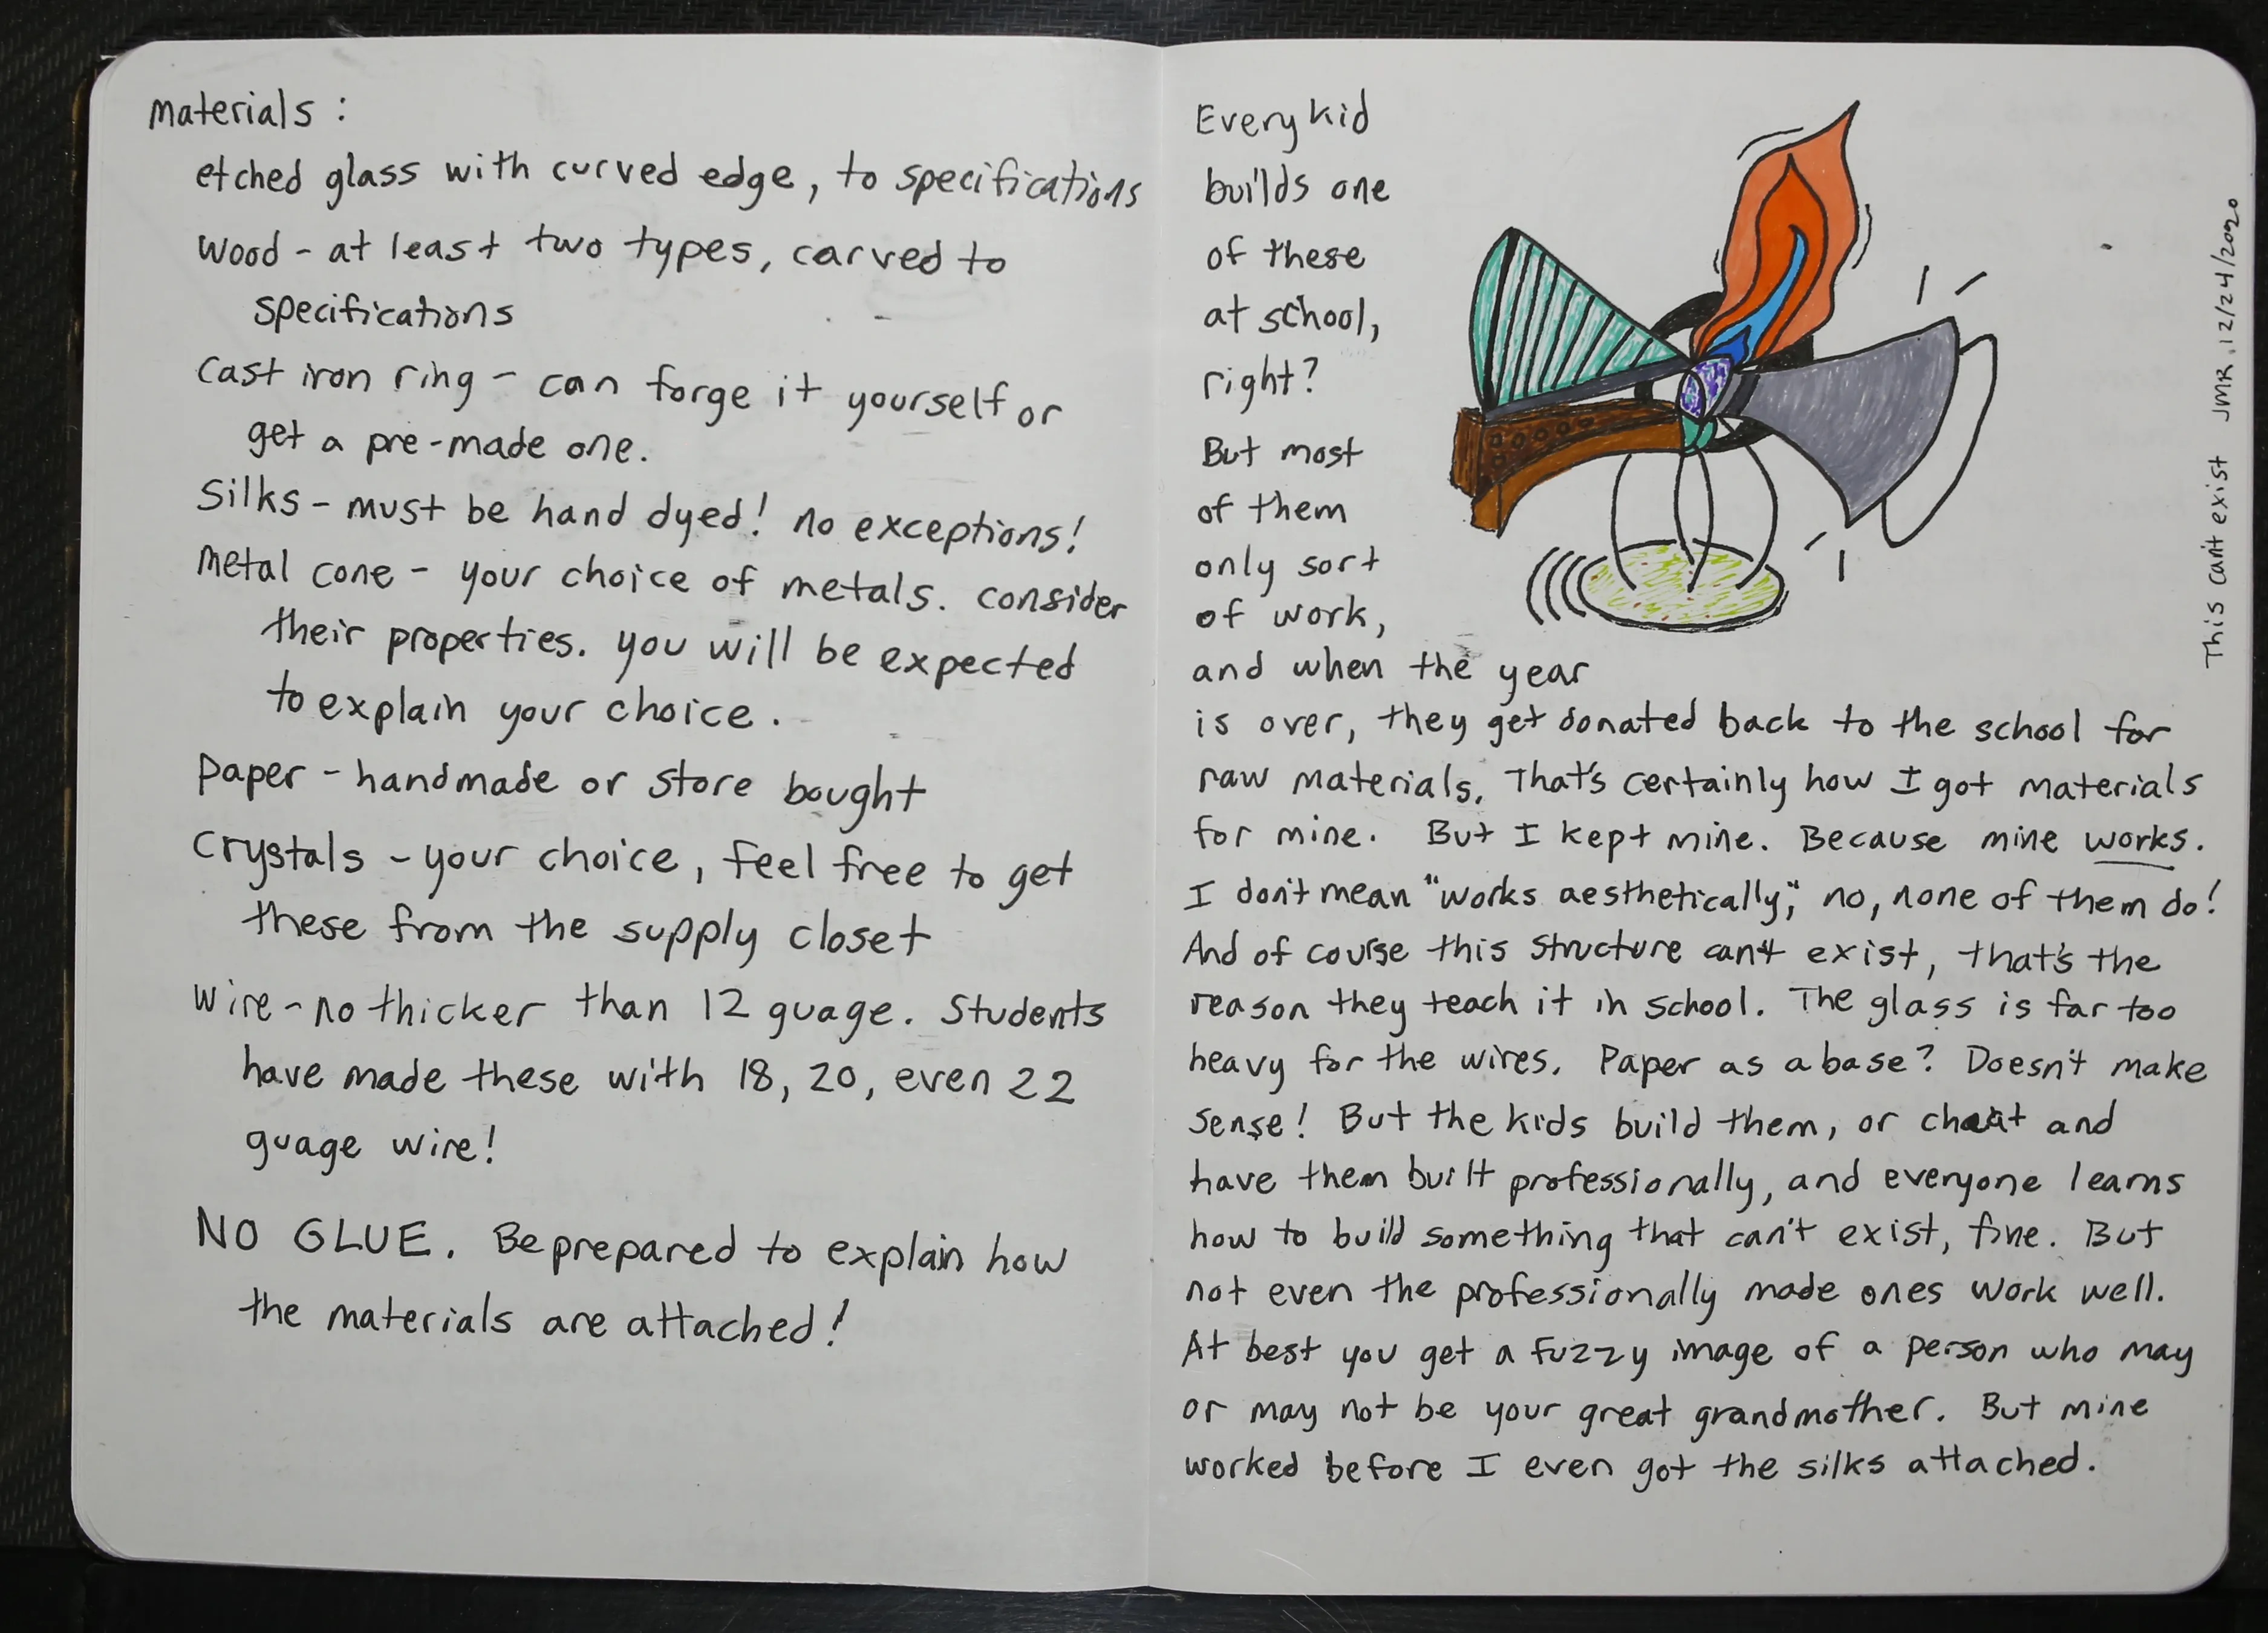 materials :
etched glass with curved edge, to specifications
wood - at least two types, carved to
specifications
cast iron ring - can forge it yourself or
get a pre-made one.
silks - must be hand dyed! no exceptions!
metal cone - your choice of metals. consider
their properties. you will be expected
to explain your choice.
paper - handmade or store bought
crystals - your choice, feel free to get
these from the supply closet
wire - no thicker than 12 guage. Students
have made these with 18, 20, even 22
guage wire!
NO GLUE. Be prepared to explain how
the materials are attached!
Every kid
builds one
of these
at school,
right?
But most
of them
only sort
of work,
and when the year
is over, they get donated back to the school for
raw materials. That's certainly how I got materials
for mine. But I kept mine. Because mine works.
I don't mean "works aesthetically," no, none of them do!
And of course this structure can't exist, that's the
reason they teach it in school. The glass is far too
heavy for the wires. Paper as a base? Doesn't make
sense! But the kids build them, or cheat and
have them built professionally, and everyone learns
how to build something that can't exist, fine. But
not even the professionally made ones work well.
At best you get a fuzzy image of a person who may
or may not be your great grandmother. But mine
worked before I even got the silks attached.
This can't exist JMR 12/24/2020